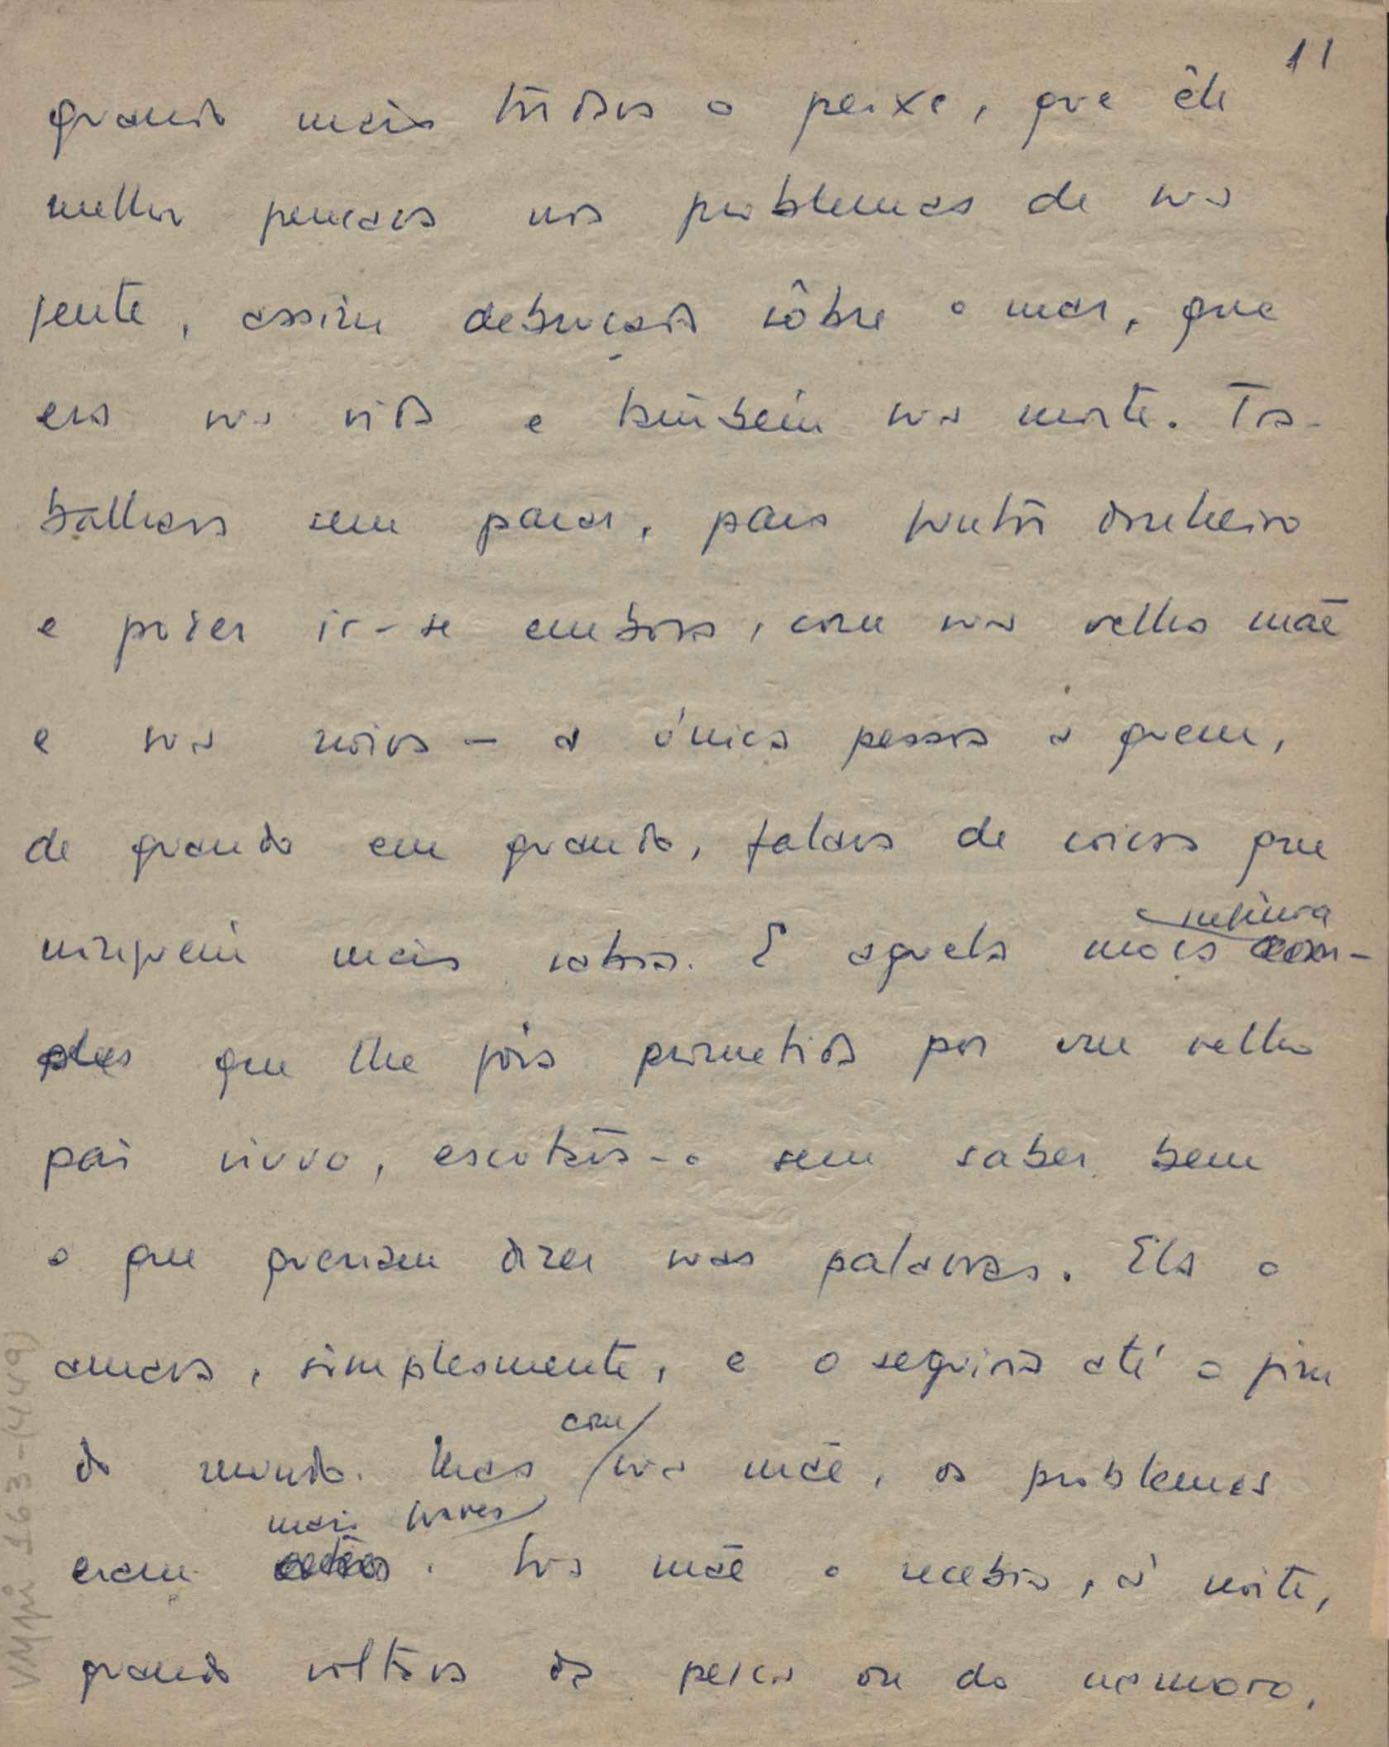 11
quando mais tardava o peixe, que êle
melhor pensava nos problemas de sua
gente, assim debruçado sôbre o mar, que
era sua vida e também sua morte. Tra-
balhava sem parar, para juntar dinheiro
e poder ir-se embora, com sua velha mãe
e sua noiva — a única pessoa a quem,
de quando em quando, falava de coisas que
ninguém mais sabia. E aquela
menina
moça sim-
ples que lhe fôra prometida por um velho
pai viuvo, escutava-o sem saber bem
o que queriam dizer suas palavras. Ela o
amava, simplesmente, e o seguiria até o fim
do mundo. Mas
com
sua mãe, os problemas
mais graves
eram outros. Sua mãe o recebia, à noite,
quando voltava da pesca ou do namoro,
VMpi 163-(449)